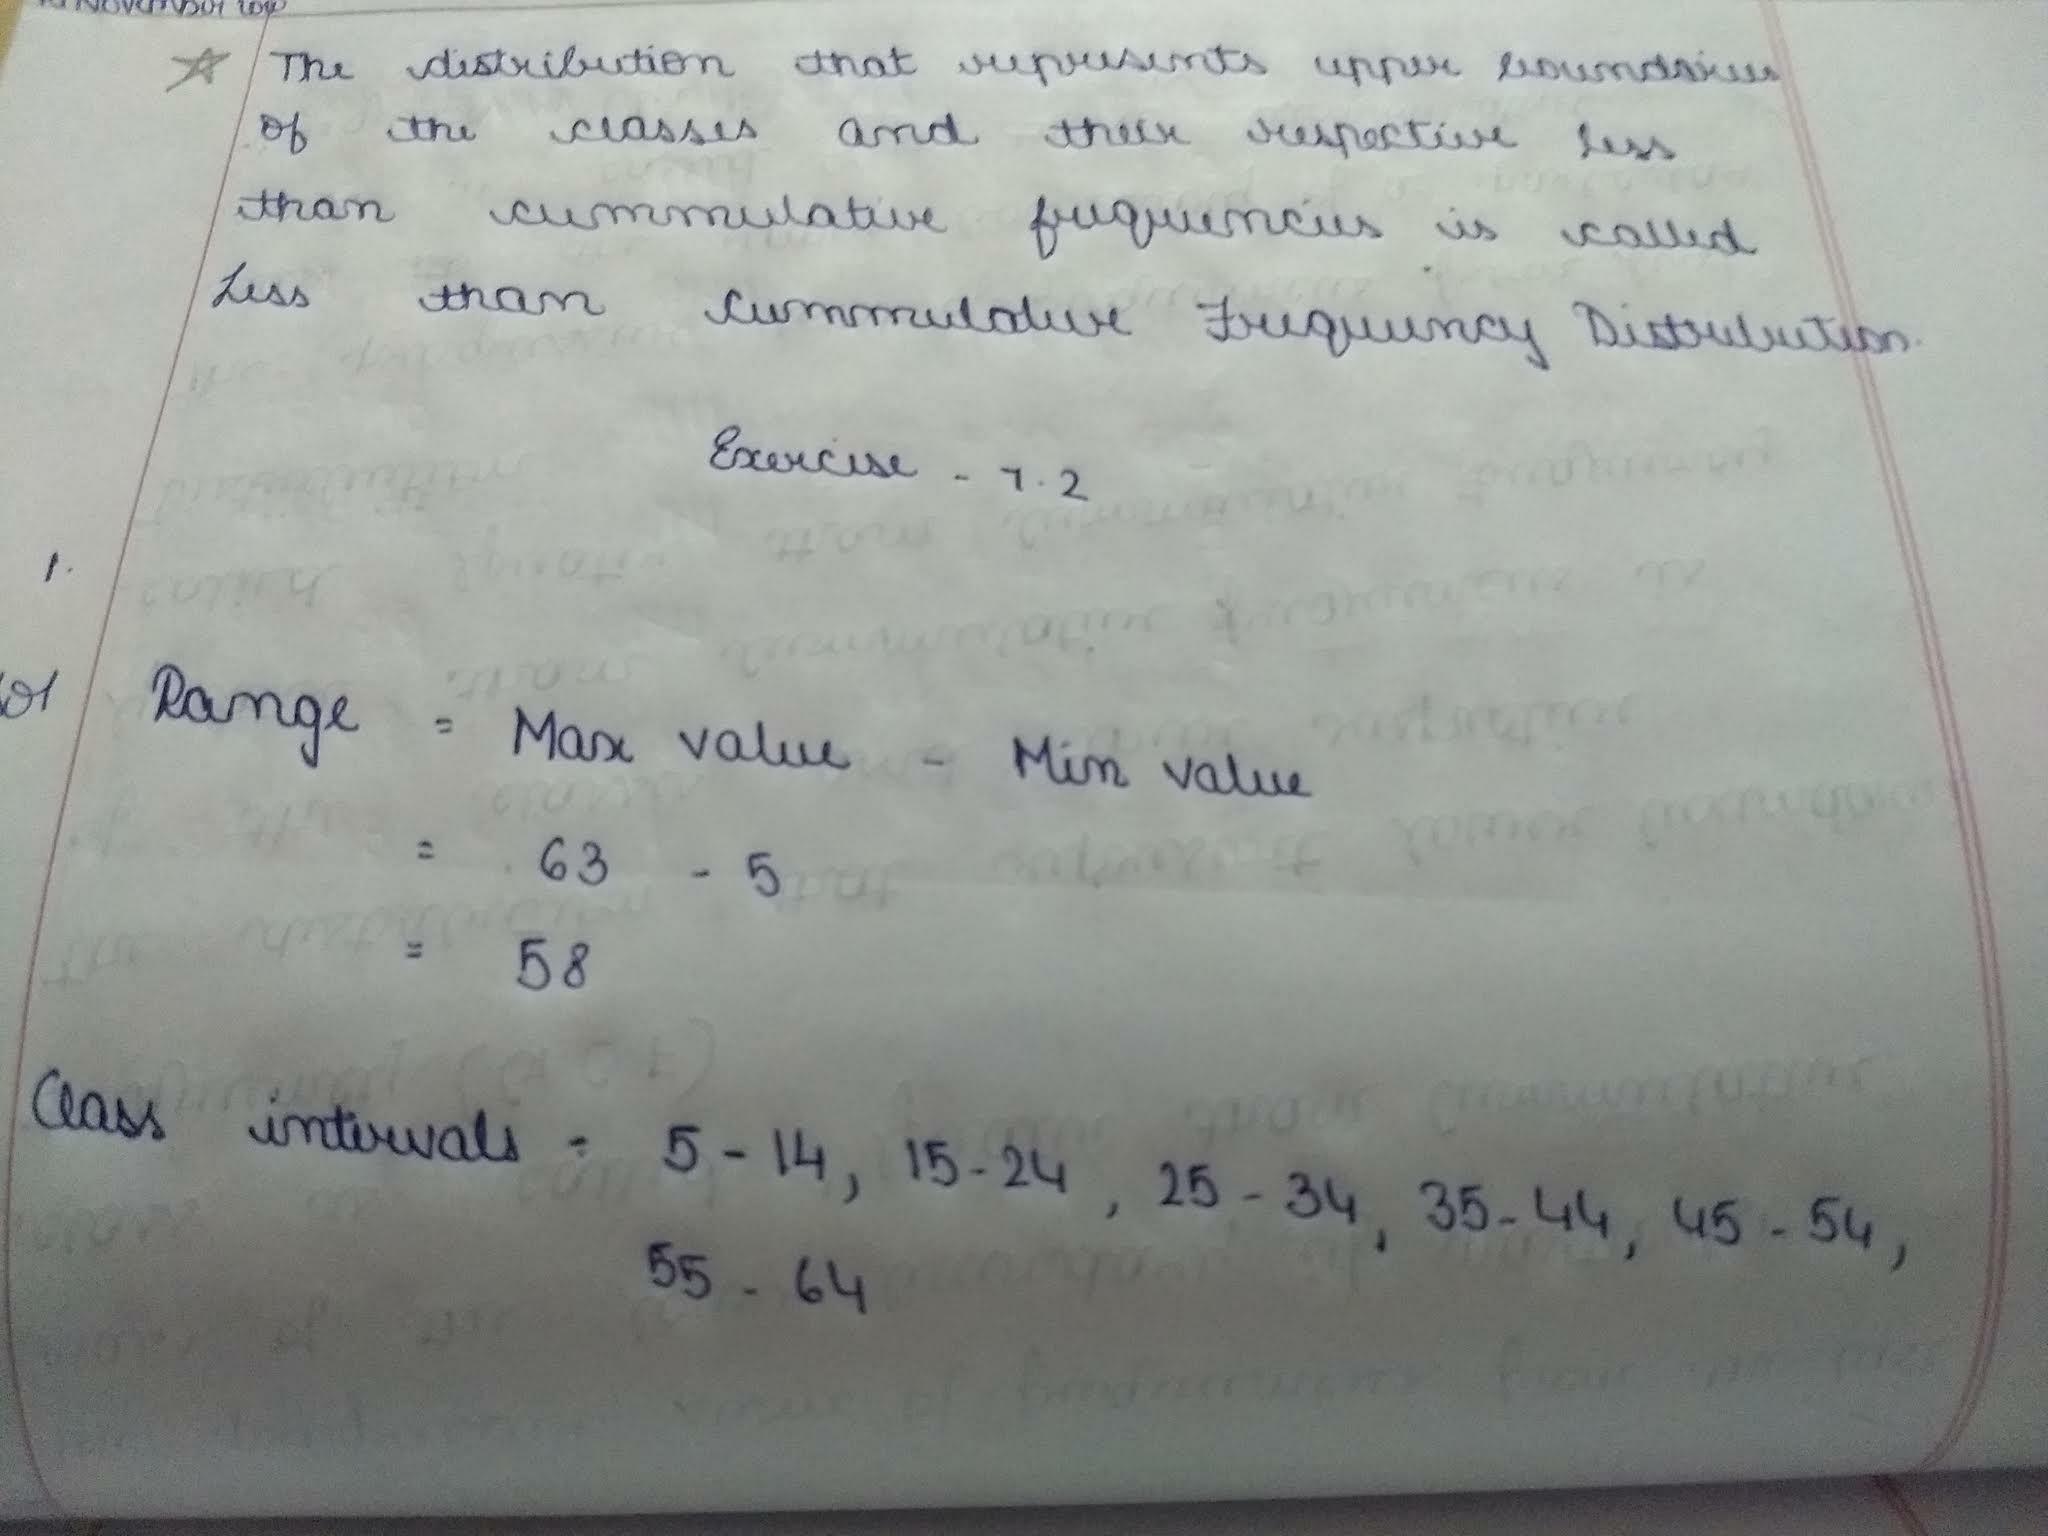 ☆ The distribution that represents upper boundaries
of the classes and their respective less
than cummulative frequencies is called
Less than Cummulative Frequency Distribution.
Exercise - 7.2
1.
Range = Max value - Min value
= 63 - 5
= 58
Class intervals = 5-14, 15-24, 25-34, 35-44, 45-54,
55-64